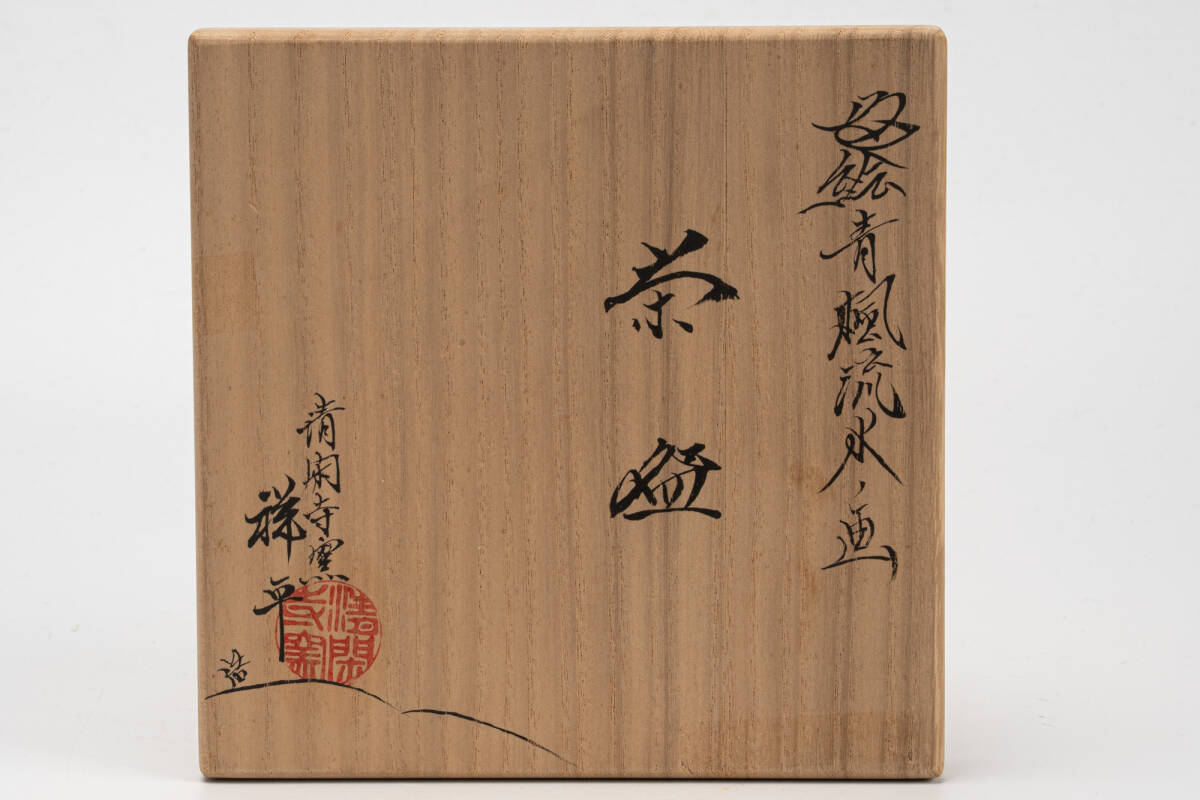 色絵青楓流水ノ画
茶盌
清閑寺窯
祥平
造
清閑寺窯